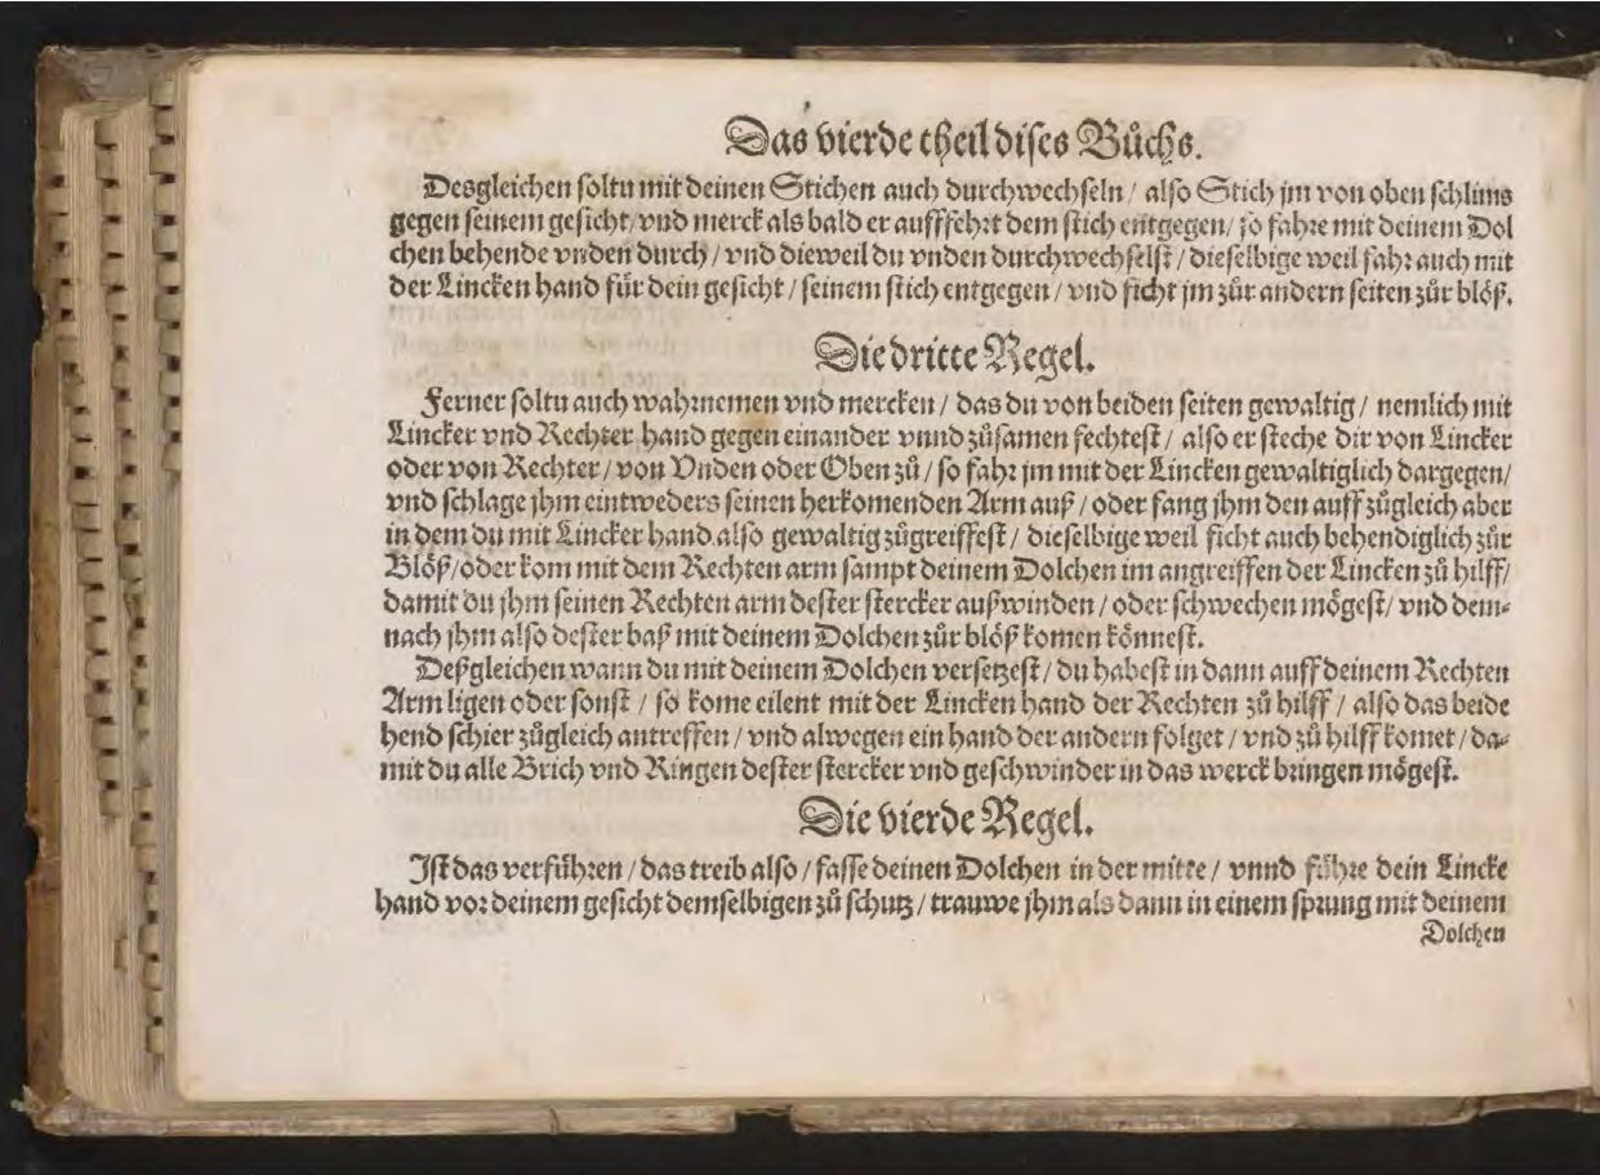 Das vierde theil dises Bůchs.
Desgleichen soltu mit deinen Stichen auch durchwechseln / also Stich jm von oben schlims
gegen seinem gesicht / vnd merck als bald er aufffehrt dem stich entgegen / so fahre mit deinem Dol
chen behende vnden durch / vnd dieweil du vnden durchwechselst / dieselbige weil fahr auch mit
der Lincken hand für dein gesicht / seinem stich entgegen / vnd ficht jm zůr andern seiten zůr blöß.
Die dritte Regel.
Ferner soltu auch wahrnemen vnd mercken / das du von beiden seiten gewaltig / nemlich mit
Lincker vnd Rechter hand gegen einander vnnd zůsamen fechtest / also er steche dir von Lincker
oder von Rechter / von Vnden oder Oben zů / so fahr jm mit der Lincken gewaltiglich dargegen /
vnd schlage jhm eintweders seinen herkomenden Arm auß / oder fang jhm den auff zůgleich aber
in dem du mit Lincker hand also gewaltig zůgreiffest / dieselbige weil ficht auch behendiglich zůr
Blöß / oder kom mit dem Rechten arm sampt deinem Dolchen im angreiffen der Lincken zů hilff /
damit du jhm seinen Rechten arm dester stercker außwinden / oder schwechen mögest / vnd dem-
nach jhm also dester baß mit deinem Dolchen zůr blöß komen könnest.
Deßgleichen wann du mit deinem Dolchen versetzest / du habest in dann auff deinem Rechten
Arm ligen oder sonst / so kome eilent mit der Lincken hand der Rechten zů hilff / also das beide
hend schier zůgleich antreffen / vnd alwegen ein hand der andern folget / vnd zů hilff komet / da-
mit du alle Brich vnd Ringen dester stercker vnd geschwinder in das werck bringen mögest.
Die vierde Regel.
Ist das verführen / das treib also / fasse deinen Dolchen in der mitte / vnnd führe dein Lincke
hand vor deinem gesicht demselbigen zů schutz / trauwe jhm als dann in einem sprung mit deinem
Dolchen